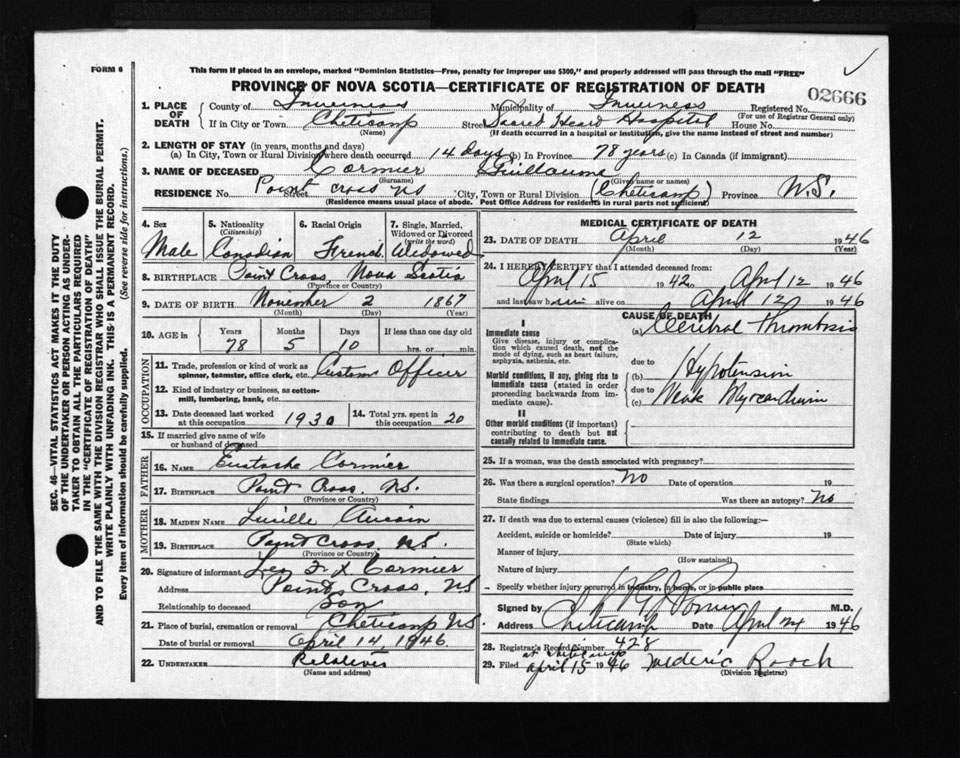 FORM 6
This form if placed in an envelope, marked "Dominion Statistics—Free, penalty for improper use $300," and properly addressed will pass through the mail "FREE"
PROVINCE OF NOVA SCOTIA—CERTIFICATE OF REGISTRATION OF DEATH
02666
1. PLACE OF DEATH
County of Inverness Municipality of Inverness Registered No.
(For use of Registrar General only)
If in City or Town Cheticamp Street Sacred Heard Hospital House No.
(Name) (If death occurred in a hospital or institution, give the name instead of street and number)
2. LENGTH OF STAY (in years, months and days)
(a) In City, Town or Rural Division where death occurred 14 days (b) In Province 78 years (c) In Canada (if immigrant)
3. NAME OF DECEASED Cormier Guillaume
(Surname) (Given name or names)
RESIDENCE No. Street Point Cross NS City, Town or Rural Division (Cheticamp) Province N.S.
(Residence means usual place of abode. Post Office Address for residents in rural parts not sufficient)
4. Sex Male
5. Nationality (Citizenship) Canadian
6. Racial Origin French
7. Single, Married, Widowed or Divorced (write the word) Widowed
8. BIRTHPLACE Point Cross Nova Scotia
(Province or Country)
9. DATE OF BIRTH November 2 1867
(Month) (Day) (Year)
10. AGE in Years Months Days If less than one day old
78 5 10 hrs. or min.
OCCUPATION
11. Trade, profession or kind of work as spinner, teamster, office clerk, etc. Custom Officer
12. Kind of industry or business, as cotton-mill, lumbering, bank, etc.
13. Date deceased last worked at this occupation 1930
14. Total yrs. spent in this occupation 20
15. If married give name of wife or husband of deceased
FATHER
16. NAME Eustache Cormier
17. BIRTHPLACE Point Cross, N.S.
(Province or Country)
MOTHER
18. MAIDEN NAME Lucille Aucoin
19. BIRTHPLACE Point Cross, N.S.
(Province or Country)
20. Signature of informant Leo F X Cormier
Address Point Cross, NS
Relationship to deceased Son
21. Place of burial, cremation or removal Cheticamp N.S.
Date of burial or removal April 14, 1946
22. UNDERTAKER Relatives
(Name and address)
MEDICAL CERTIFICATE OF DEATH
23. DATE OF DEATH April 12 1946
(Month) (Day) (Year)
24. I HEREBY CERTIFY that I attended deceased from:
April 15 1942 to April 12 1946
and last saw him alive on April 12 1946
CAUSE OF DEATH
I
Immediate cause
Give disease, injury or complication which caused death, not the mode of dying, such as heart failure, asphyxia, asthenia, etc.
(a) Cerebral Thrombosis
due to
Morbid conditions, if any, giving rise to immediate cause (stated in order proceeding backwards from immediate cause).
(b) Hypotension
due to
(c) Weak Myocardium
II
Other morbid conditions (if important) contributing to death but not causally related to immediate cause.
25. If a woman, was the death associated with pregnancy?
26. Was there a surgical operation? No Date of operation 19
State findings Was there an autopsy? No
27. If death was due to external causes (violence) fill in also the following:—
Accident, suicide or homicide? Date of injury 19
(State which)
Manner of injury
(How sustained)
Nature of injury
Specify whether injury occurred in industry, in home, or in public place
Signed by M.D.
Address Cheticamp Date April 1946
28. Registrar's Record Number 428
29. Filed April 15 1946 Roach
(Division Registrar)
SEC. 46—VITAL STATISTICS ACT MAKES IT THE DUTY
OF THE UNDERTAKER OR PERSON ACTING AS UNDER-
TAKER TO OBTAIN ALL THE PARTICULARS REQUIRED
IN THE "CERTIFICATE OF REGISTRATION OF DEATH"
AND TO FILE THE SAME WITH THE DIVISION REGISTRAR WHO SHALL ISSUE THE BURIAL PERMIT.
WRITE PLAINLY WITH UNFADING INK. THIS IS A PERMANENT RECORD.
Every item of information should be carefully supplied. (See reverse side for instructions.)